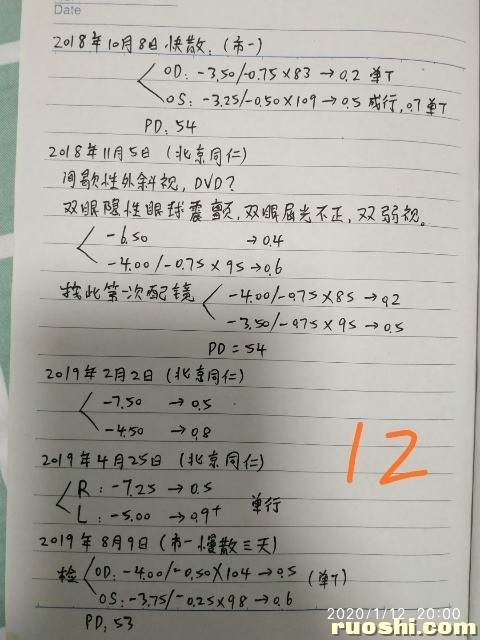 Date
2018年10月8日 快散:(市一)
OD: -3.50/-0.75×83 → 0.2 单T
OS: -3.25/-0.50×109 → 0.5 成行, 0.7 单T
PD: 54
2018年11月5日 (北京同仁)
间歇性外斜视, DVD?
双眼隐性眼球震颤, 双眼屈光不正, 双弱视。
-6.50 → 0.4
-4.00/-0.75×95 → 0.6
按此第一次配镜
-4.00/-0.75×85 → 0.2
-3.50/-0.75×95 → 0.5
PD = 54
2019年2月2日 (北京同仁)
-7.50 → 0.5
-4.50 → 0.8
2019年4月25日 (北京同仁)
R: -7.25 → 0.5
L: -5.00 → 0.9+ 单行
2019年8月9日 (市一慢散三天)
检 OD: -4.00/-0.50×104 → 0.5 (单T)
OS: -3.75/-0.25×98 → 0.6
PD: 53
12
2020/1/12, 20:00
ruoshi.com